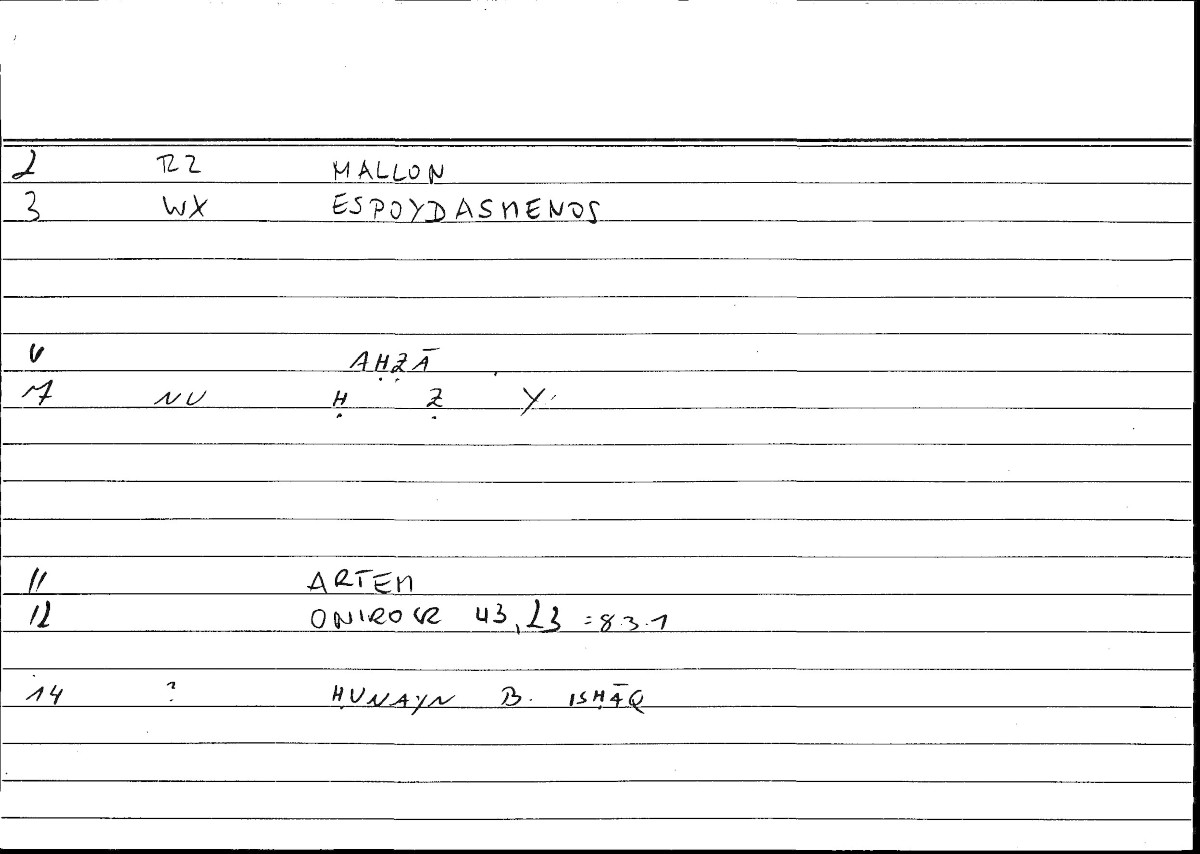 2 RZ MALLON
3 WX ESPOYDASMENOS
6 AḤẒĀ
7 NU Ḥ Ẓ Y
11 ARTEM
12 ONIROCR 43,23 =8.3.1
14 ? ḤUNAYN B. ISḤĀQ